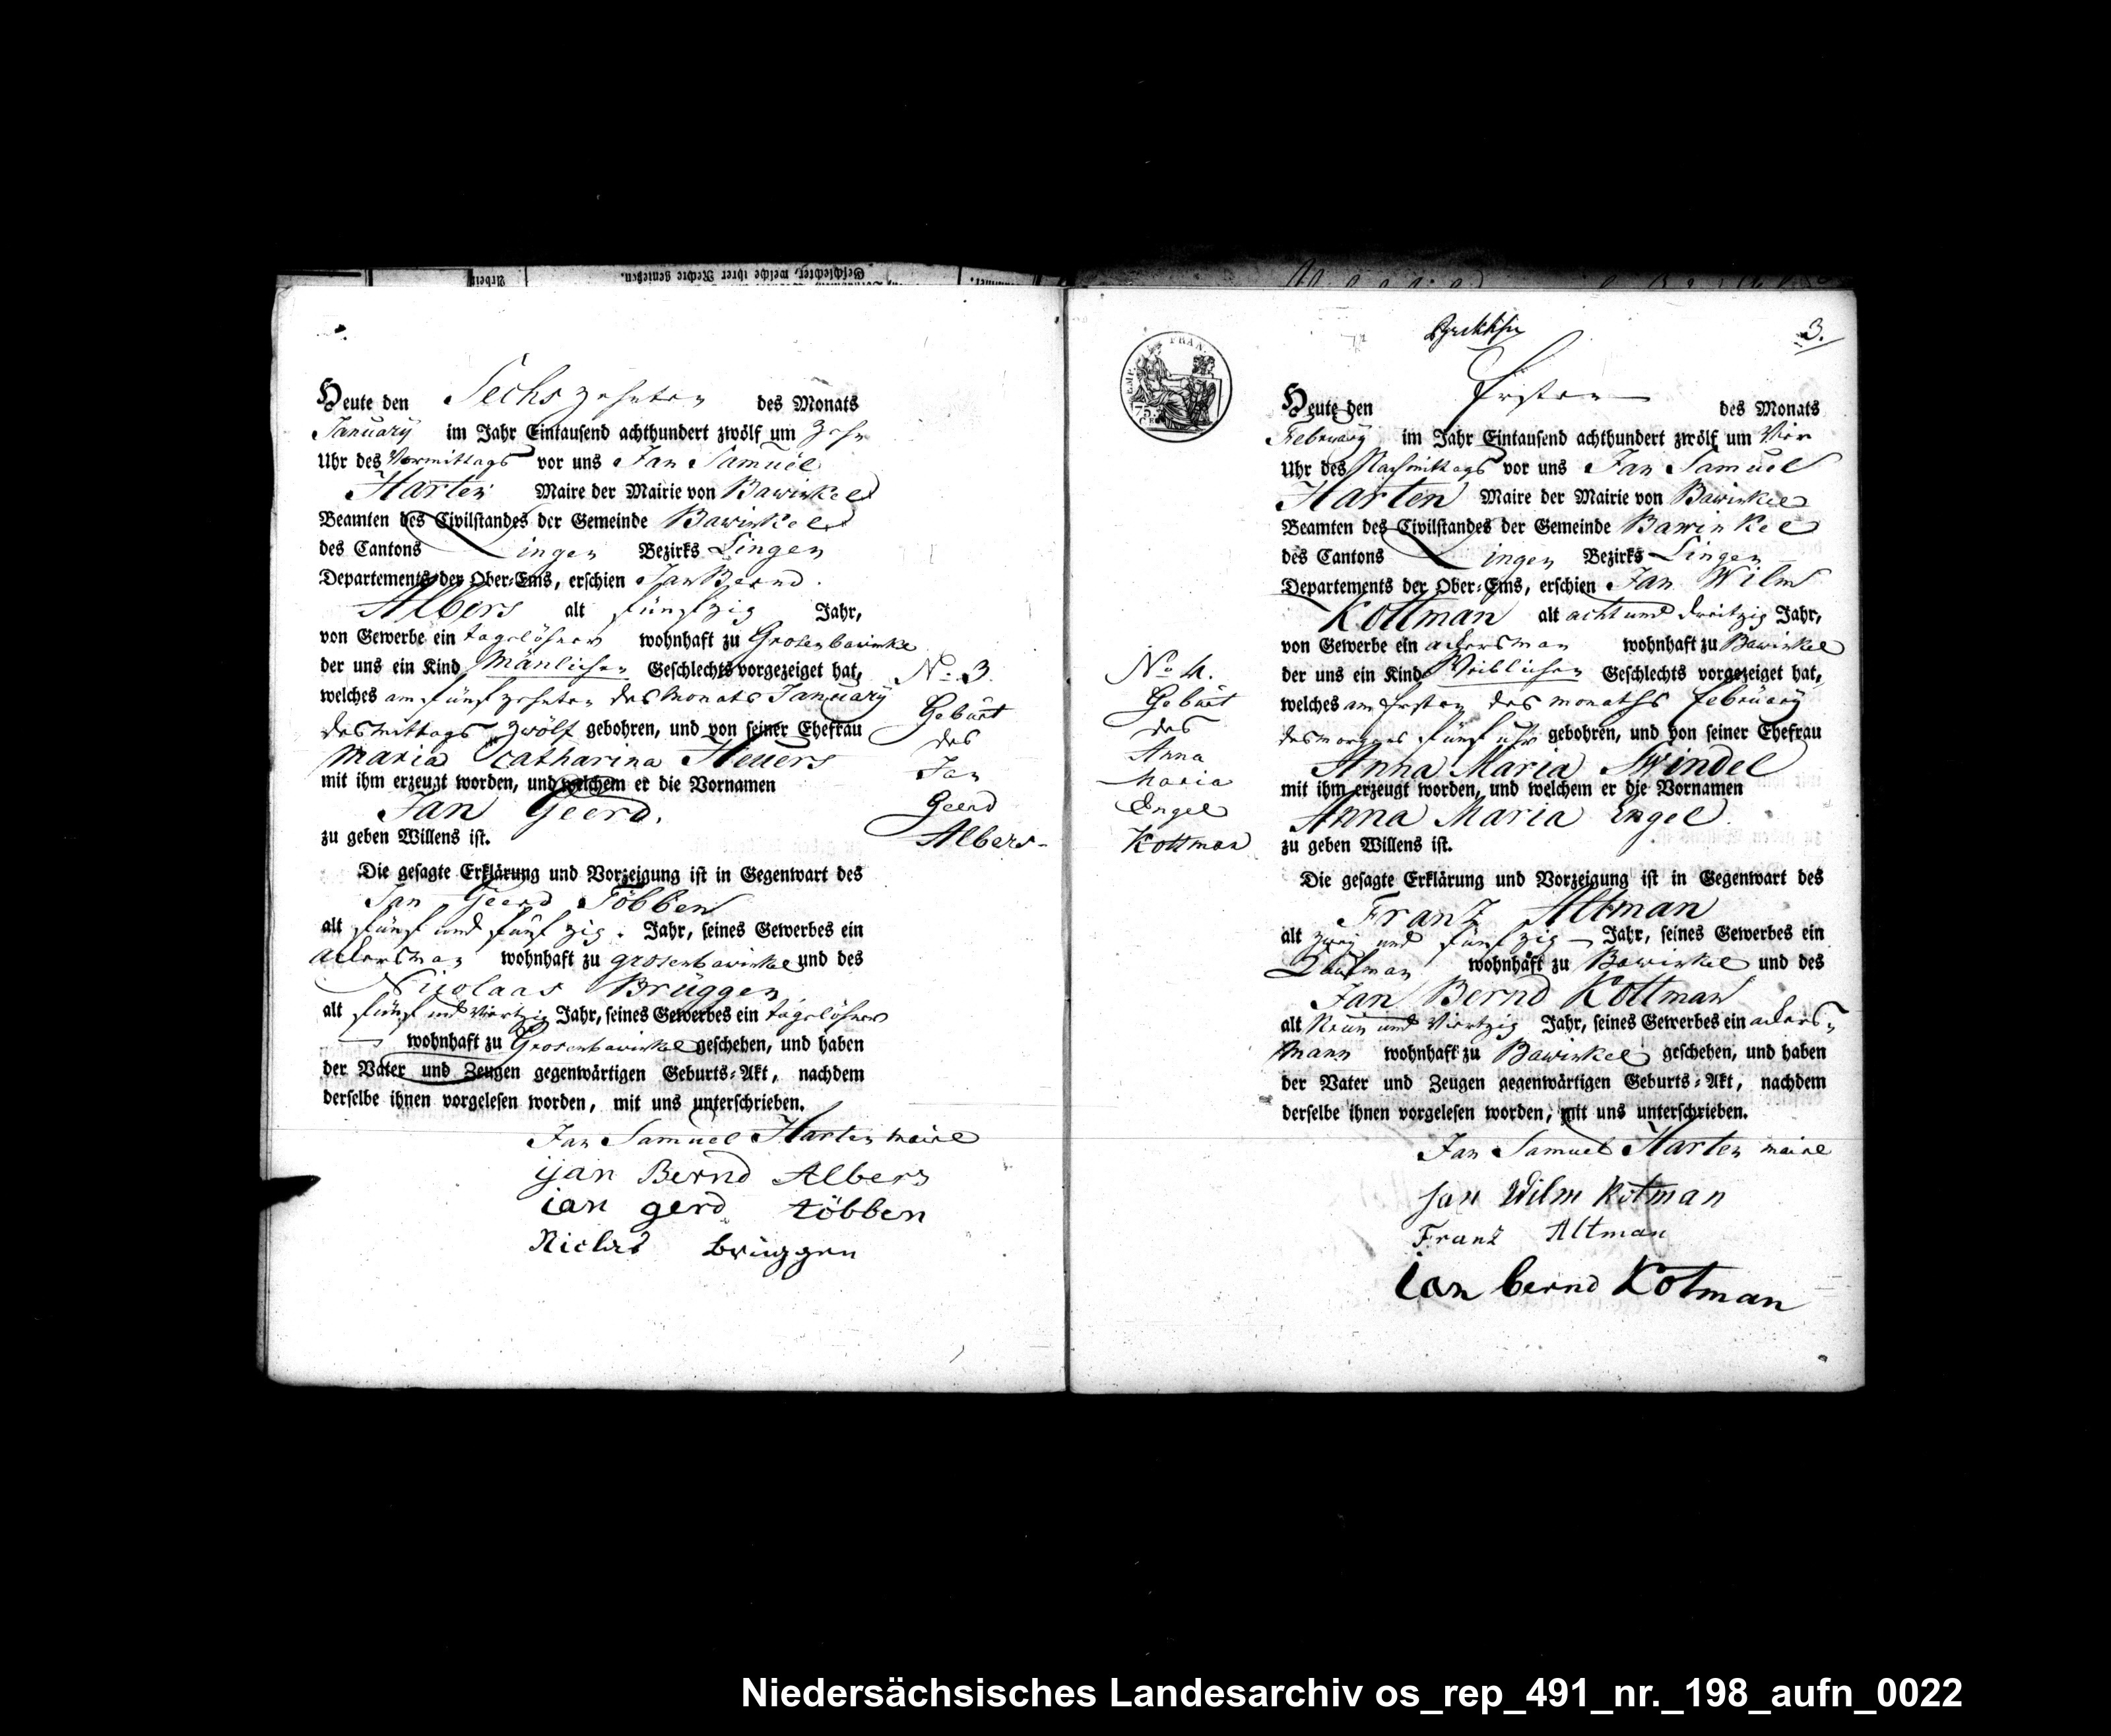 Geschlechter, welche ihrer Rechte geniessen.
Heute den Sechszehnten des Monats
January im Jahr Eintausend achthundert zwölf um Zehn
Uhr des Vormittags vor uns Jan Samuel
Harten Maire der Mairie von Bawinkel
Beamten des Civilstandes der Gemeinde Bawinkel
des Cantons Lingen Bezirks Lingen
Departements der Ober-Ems, erschien Jan Bernd
Albers alt fünfzig Jahr,
von Gewerbe ein tagelöhner wohnhaft zu Grosenbawinkel
der uns ein Kind Mänlichen Geschlechts vorgezeiget hat,
welches am fünfzehnten des Monats January
des mittags zwölf gebohren, und von seiner Ehefrau
Maria Catharina Heuers
mit ihm erzeugt worden, und welchem er die Vornamen
Jan Geerd.
zu geben Willens ist.
Die gesagte Erklärung und Vorzeigung ist in Gegenwart des
Jan Geerd Többen
alt fünf und fünfzig. Jahr, seines Gewerbes ein
ackersman wohnhaft zu grosenbawinkel und des
Nicolaas Brüggen
alt fünf und Viertzig Jahr, seines Gewerbes ein tagelöhner
wohnhaft zu Grosenbawinkel geschehen, und haben
der Vater und Zeugen gegenwärtigen Geburts-Akt, nachdem
derselbe ihnen vorgelesen worden, mit uns unterschrieben.
Jan Samuel Harten maire
ijan Bernd Albers
ian gerd többen
Niclas Brüggen
No. 3.
Geburt
des
Jan
Geerd
Albers-
EMP. FRAN.
75.
3.
Heute den Ersten des Monats
February im Jahr Eintausend achthundert zwölf um Vier
Uhr des Nachmittags vor uns Jan Samuel
Harten Maire der Mairie von Bawinkel
Beamten des Civilstandes der Gemeinde Bawinkel
des Cantons Lingen Bezirks Lingen
Departements der Ober-Ems, erschien Jan Wilm
Kottman alt acht und dreitzig Jahr,
von Gewerbe ein ackersman wohnhaft zu Bawinkel
der uns ein Kind Weiblichen Geschlechts vorgezeiget hat,
welches am Ersten des monaths february
des morgens fünf uhr gebohren, und von seiner Ehefrau
Anna Maria Swindel
mit ihm erzeugt worden, und welchem er die Vornamen
Anna Maria Engel.
zu geben Willens ist.
Die gesagte Erklärung und Vorzeigung ist in Gegenwart des
Franz Altman
alt zwey und fünfzig Jahr, seines Gewerbes ein
Kaufman wohnhaft zu Bawinkel und des
Jan Bernd Kottman
alt Neun und Viertzig Jahr, seines Gewerbes ein ackers-
mann wohnhaft zu Bawinkel geschehen, und haben
der Vater und Zeugen gegenwärtigen Geburts-Akt, nachdem
derselbe ihnen vorgelesen worden, mit uns unterschrieben.
Jan Samuel Harten maire
Jan Wilm Kotman
Franz Altman
ian bernd Kotman
No 4.
Geburt
des
Anna
Maria
Engel
Kottman
Niedersächsisches Landesarchiv os_rep_491_nr._198_aufn_0022